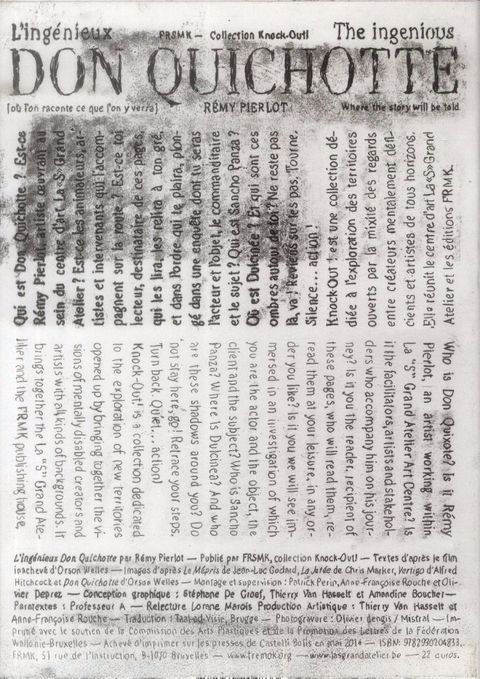 L'ingénieux FRSMK — Collection Knock-Out! The ingenious
DON QUICHOTTE
[où l'on raconte ce que l'on y verra] RÉMY PIERLOT Where the story will be told
Qui est Don Quichotte ? Est-ce
Rémy Pierlot, artiste œuvrant au
sein du centre d'art La «S» Grand
Atelier ? Est-ce les animateurs, ar-
tistes et intervenants qui l'accom-
pagnent sur la route ? Est-ce toi
lecteur, destinataire de ces pages,
qui les lira, les relira à ton gré,
et dans l'ordre qui te plaira, plon-
gé dans une enquête dont tu seras
l'acteur et l'objet, le commanditaire
et le sujet ? Qui est Sancho Panza ?
Où est Dulcinée ? Et qui sont ces
ombres autour de toi ? Ne reste pas
là, va ! Reviens sur tes pas. Tourne.
Silence... action !
Knock-Out ! est une collection dé-
diée à l'exploration des territoires
ouverts par la mixité des regards
entre créateurs mentalement défi-
cients et artistes de tous horizons.
Elle réunit le centre d'art La «S» Grand
Atelier et les éditions FRMK.
Who is Don Quixote? Is it Rémy
Pierlot, an artist working within
La "S" Grand Atelier Art Centre? Is
it the facilitators, artists and stakehol-
ders who accompany him on his jour-
ney? Is it you the reader, recipient of
these pages, who will read them, re-
read them at your leisure, in any or-
der you like? Is it you we will see im-
mersed in an investigation of which
you are the actor and the object, the
client and the subject? Who is Sancho
Panza? Where is Dulcinea? And who
are these shadows around you? Do
not stay here, go! Retrace your steps.
Turn back. Quiet... action!
Knock-Out! is a collection dedicated
to the exploration of new territories
opened up by bringing together the vi-
sions of mentally disabled creators and
artists with all kinds of backgrounds. It
brings together the La "S" Grand Ate-
lier and the FRMK publishing house.
L'Ingénieux Don Quichotte par Rémy Pierlot — Publié par FRSMK, collection Knock-Out! — Textes d'après le film
inachevé d'Orson Welles — Images d'après Le Mépris de Jean-Luc Godard, La Jetée de Chris Marker, Vertigo d'Alfred
Hitchcock et Don Quichotte d'Orson Welles — Montage et supervision : Patrick Perin, Anne-Françoise Rouche et Oli-
vier Deprez — Conception graphique : Stéphane De Groef, Thierry Van Hasselt et Amandine Boucher —
Paratextes : Professeur A — Relecture Lorane Marois Production Artistique : Thierry Van Hasselt et
Anne-Françoise Rouche — Traduction : Taal-ad-Visie, Bruges — Photogravure : Olivier Dengis / Mistral — Im-
primé avec le soutien de la Commission des Arts Plastiques et de la Promotion des Lettres de la Fédération
Wallonie-Bruxelles — Achevé d'imprimer sur les presses de Castelli Bolis en mai 2014 — ISBN: 9782930204833.
FRMK, 51 rue de l'Instruction, B-1070 Bruxelles — www.fremok.org — www.lasgrandatelier.be — 22 euros.